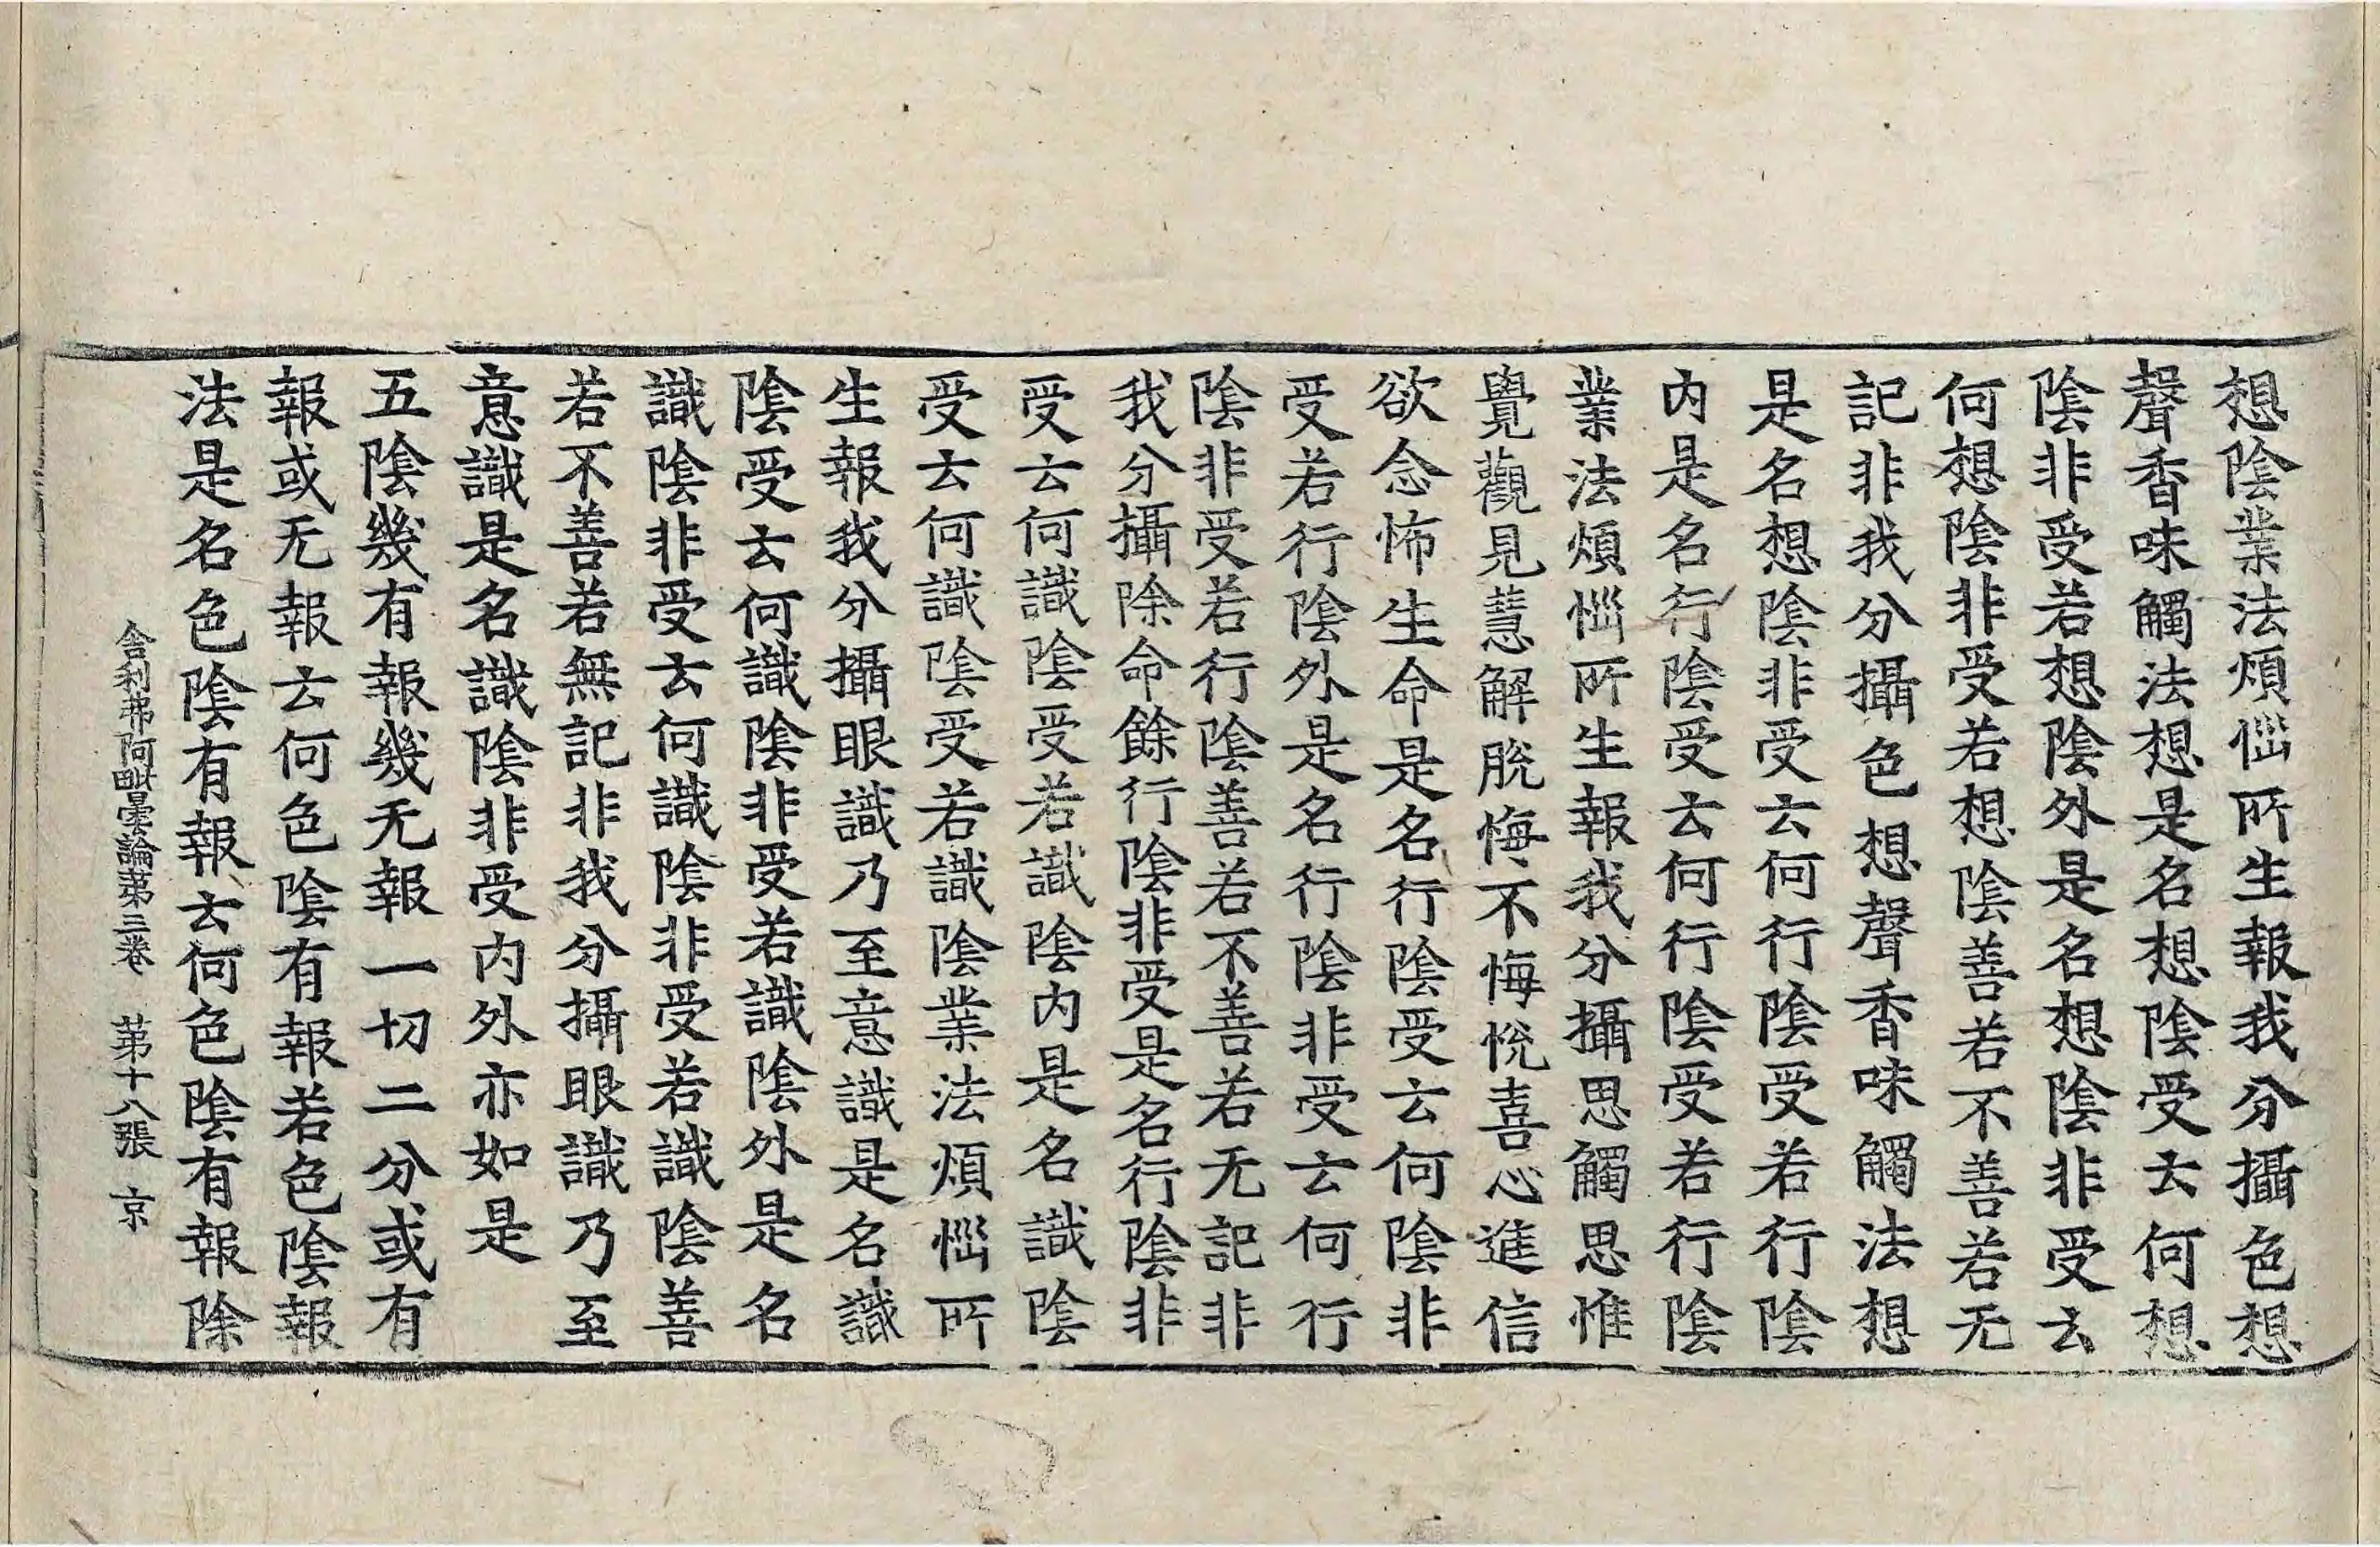 想陰業法煩惱所生報我分攝色想
聲香味觸法想是名想陰受云何想
陰非受若想陰外是名想陰非受云
何想陰非受若想陰善若不善若无
記非我分攝色想聲香味觸法想
是名想陰非受云何行陰受若行陰
内是名行陰受云何行陰受若行陰
業法煩惱所生報我分攝思觸思惟
覺觀見慧解脫悔不悔悅喜心進信
欲念怖生命是名行陰受云何陰非
受若行陰外是名行陰非受云何行
陰非受若行陰善若不善若无記非
我分攝除命餘行陰非受是名行陰非
受云何識陰受若識陰内是名識陰
受云何識陰受若識陰業法煩惱所
生報我分攝眼識乃至意識是名識
陰受云何識陰非受若識陰外是名
識陰非受云何識陰非受若識陰善
若不善若無記非我分攝眼識乃至
意識是名識陰非受内外亦如是
五陰幾有報幾无報一切二分或有
報或无報云何色陰有報若色陰報
法是名色陰有報云何色陰有報除
舍利弗阿毗曇論第三卷 第十八張 京